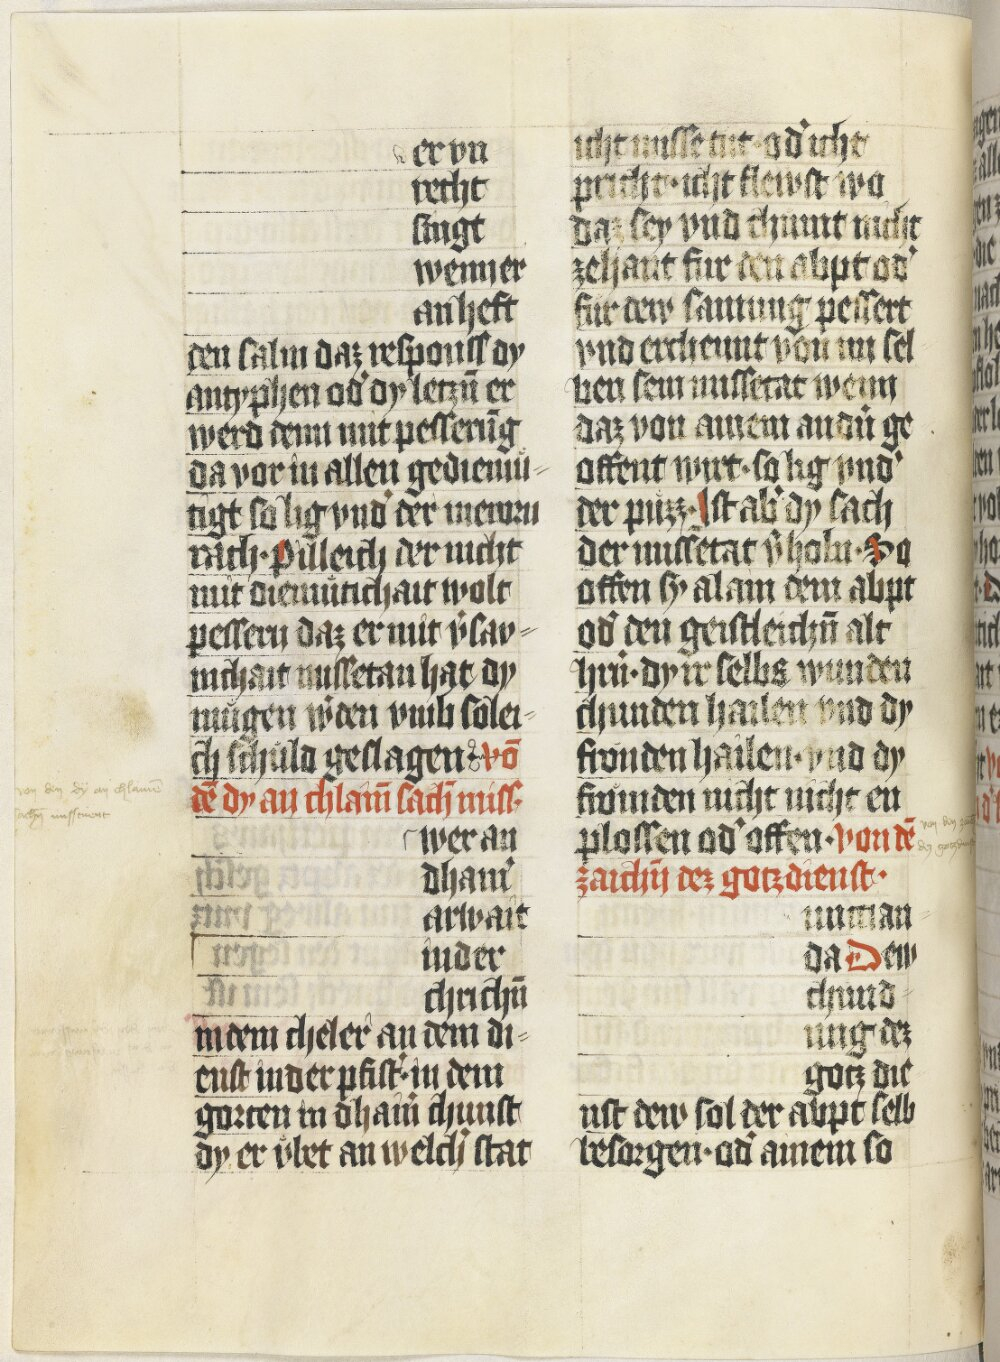 er vn
recht
singt
wenner
an heft
den salm daz responss dy
antyphen od' dy letzn̄ er
werd denn mit pesserūg
da vor in allen gediemü-
tigt so lig vnd' der merorn
rach. Pilleich der nicht
mit diemütichait wolt
pessern daz er mit v̄sav-
mchait missetan hat dy
mügen w'den vmb sölei-
ch schuld geslagen. vō
dē dy an chlain̄ sach̄ miss.
wer an
dhain̄
arwait
in der
chrichn̄
in dem cheler an dem di-
enst in der pfist' in dem
gorten in dhain̄ chunst
dy er v̈bet an welch' stat
icht misse tut. od' icht
pricht. icht flewst wo
daz sey vnd chumt nicht
zehant für den abpt od'
für dew samnung pessert
vnd erchennt von im sel
ben sein missetat wenn
daz von ainem andn̄ ge
offent wirt. so lig vnd'
der puzz. Ist ab' dy sach
der missetat v̄holn. So
offen sy alain dem abpt
od' den geistleichn̄ alt
hrn̄. dy ir selbs wunden
chunden hailen vnd dy
fromden hailen. vnd dy
fromden nicht nicht en
plossen od' offen. von dē
zaichn̄ dez gotzdienst.
niman
da Dew
chund-
ung dez
gotz die
nst dew sol der abpt selb
besorgen. od' ainem so